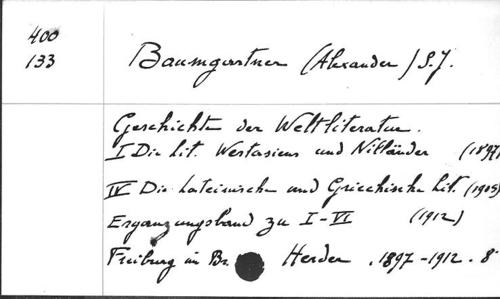 400
133
Baumgartner (Alexander) S.J.
Geschichte der Weltliteratur.
I Die Lit. Westasiens und Nilländer (1897)
IV Die Lateinische und Griechische Lit. (1905)
Ergänzungsband zu I-VI (1912)
Freiburg im Br. Herder, 1897-1912. 8°